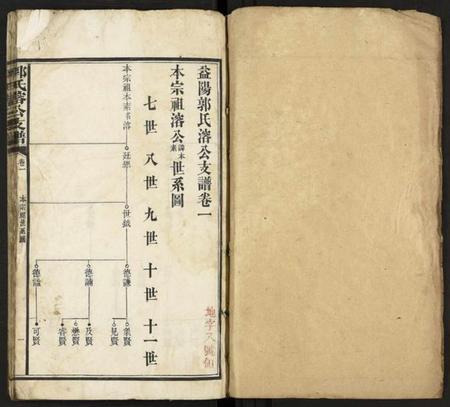 益陽郭氏濬公支譜卷一
本宗祖濬公譜本素世系圖
七世 八世 九世 十世 十一世
本宗祖本素名濬
廷學
世鉞
德謙
德誦
德謐
業賢
見賢
及賢
懋賢
睿賢
可賢
郭氏濬公支譜
卷一
本宗祖世系圖
一
地字八號領